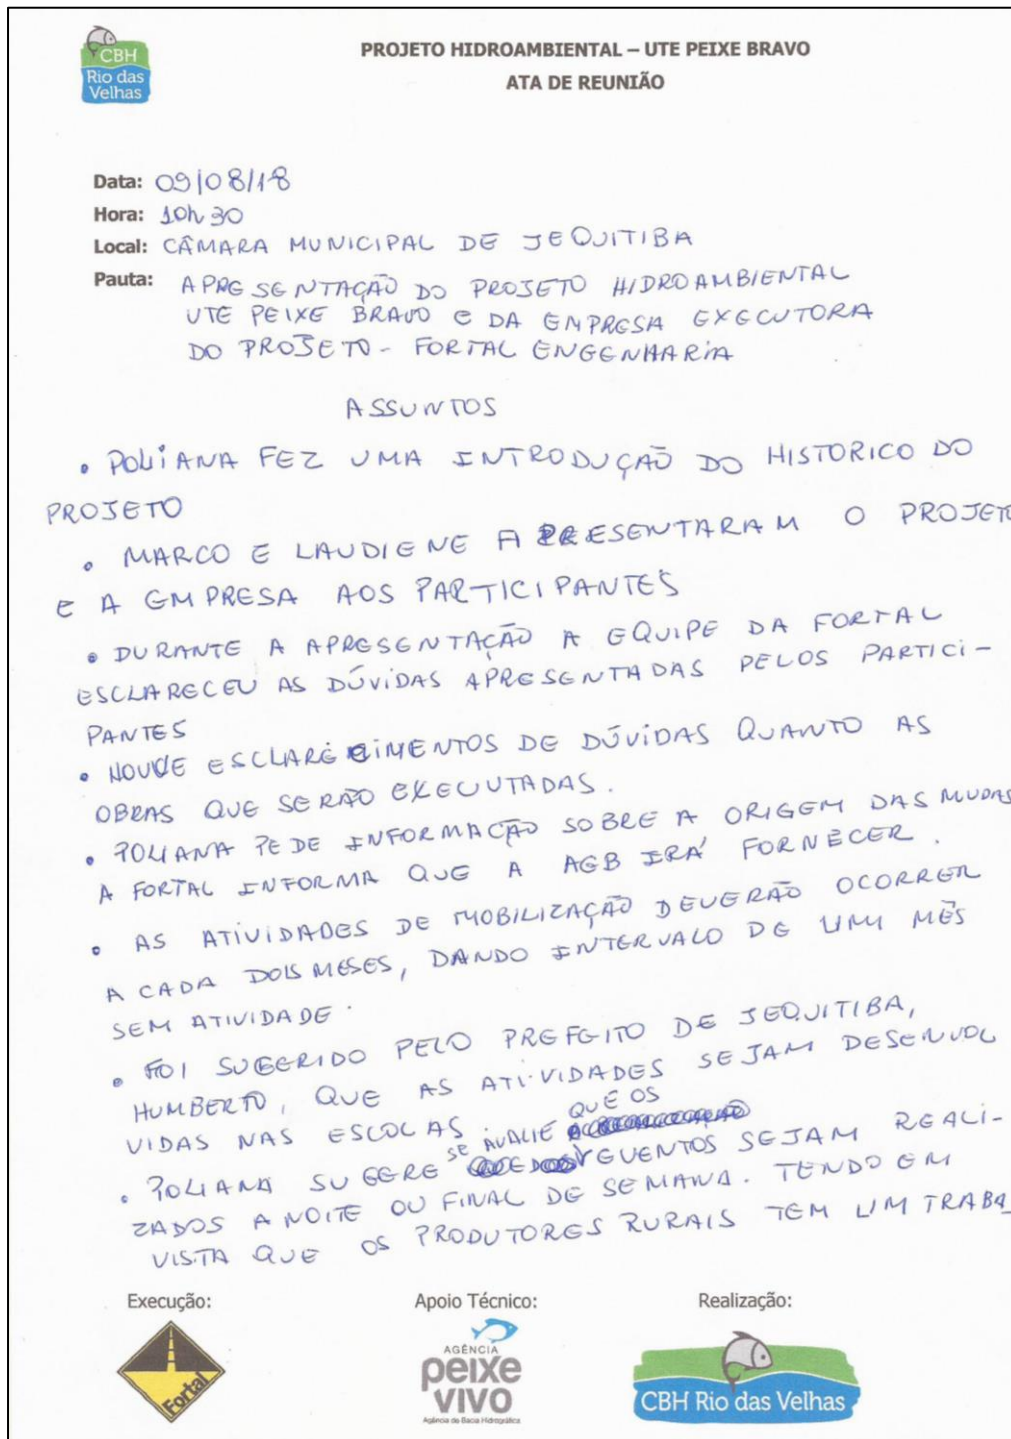 CBH
Rio das
Velhas
PROJETO HIDROAMBIENTAL – UTE PEIXE BRAVO
ATA DE REUNIÃO
Data: 09/08/18
Hora: 10h30
Local: CÂMARA MUNICIPAL DE JEQUITIBA
Pauta: APRESENTAÇÃO DO PROJETO HIDROAMBIENTAL
UTE PEIXE BRAVO E DA EMPRESA EXECUTORA
DO PROJETO - FORTAL ENGENHARIA
ASSUNTOS
• POLIANA FEZ UMA INTRODUÇÃO DO HISTORICO DO
PROJETO
• MARCO E LAUDIENE APRESENTARAM O PROJETO
E A EMPRESA AOS PARTICIPANTES
• DURANTE A APRESENTAÇÃO A EQUIPE DA FORTAL
ESCLARECEU AS DÚVIDAS APRESENTADAS PELOS PARTICI-
PANTES
• HOUVE ESCLARECIMENTOS DE DÚVIDAS QUANTO AS
OBRAS QUE SERÃO EXECUTADAS.
• POLIANA PEDE INFORMAÇÃO SOBRE A ORIGEM DAS MUDAS
A FORTAL INFORMA QUE A AGB IRÁ FORNECER.
• AS ATIVIDADES DE MOBILIZAÇÃO DEVERÃO OCORRER
A CADA DOIS MESES, DANDO INTERVALO DE UM MÊS
SEM ATIVIDADE.
• FOI SUGERIDO PELO PREFEITO DE JEQUITIBA,
HUMBERTO, QUE AS ATIVIDADES SEJAM DESENVOL
VIDAS NAS ESCOLAS.
• POLIANA SUGERE SE AVALIE QUE OS EVENTOS SEJAM REALI-
ZADOS A NOITE OU FINAL DE SEMANA. TENDO EM
VISTA QUE OS PRODUTORES RURAIS TEM UM TRABA
Execução:
Apoio Técnico:
Realização:
Fortal
AGÊNCIA
peixe
VIVO
Agência de Bacia Hidrográfica
CBH Rio das Velhas